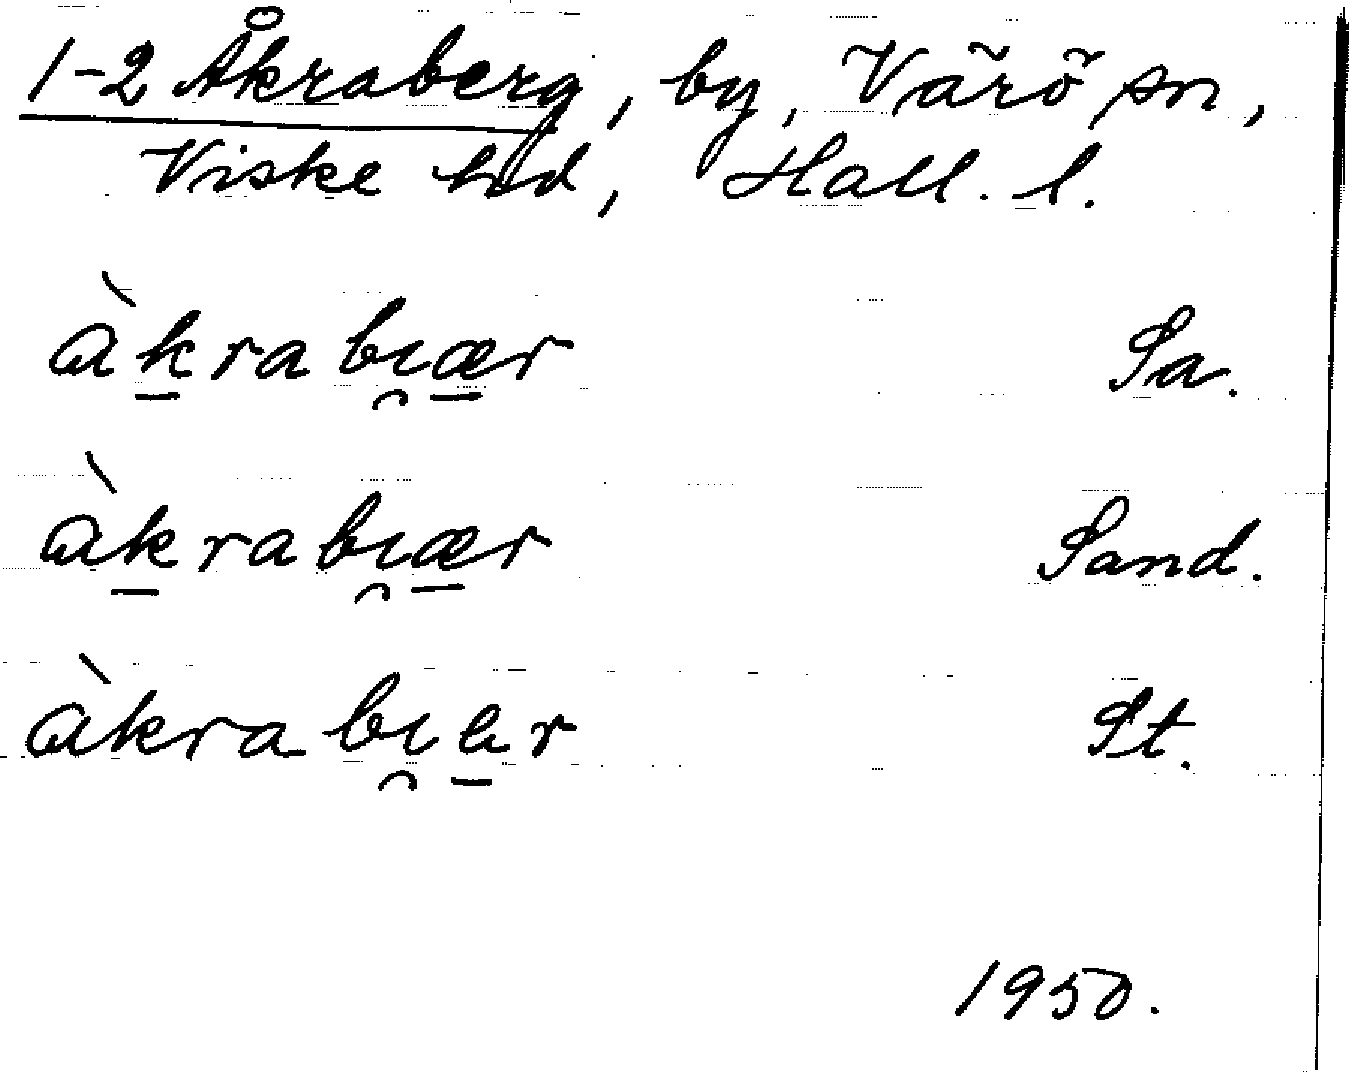 1-2 Åkraberg, by, Värö sn,
Viske hd, Hall. l.
àkrabıær Sa.
àkrabıær Sand.
àkrabıer St.
1950.